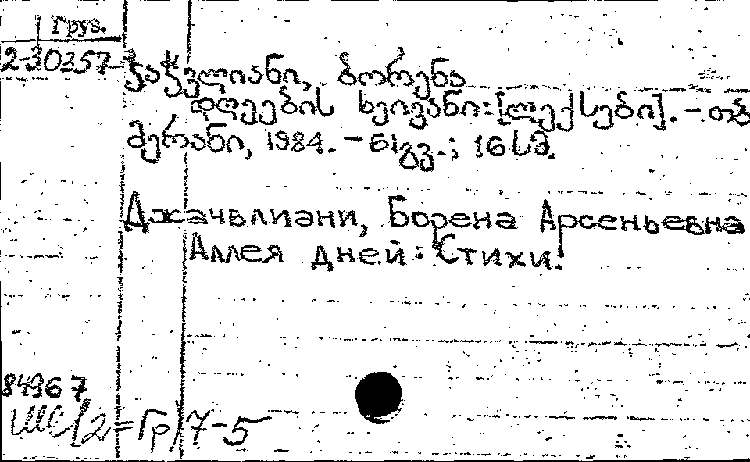 Груз.
2-30257
ჭაჭვლიანი, ბორენა
დღეების ხეივანი: [ლექსები]. - თბ.
მერანი, 1984. - 61გვ.; 16 სმ.
Джачвлиани, Борена Арсеньевна
Аллея дней: Стихи.
84967
Гр/7-5